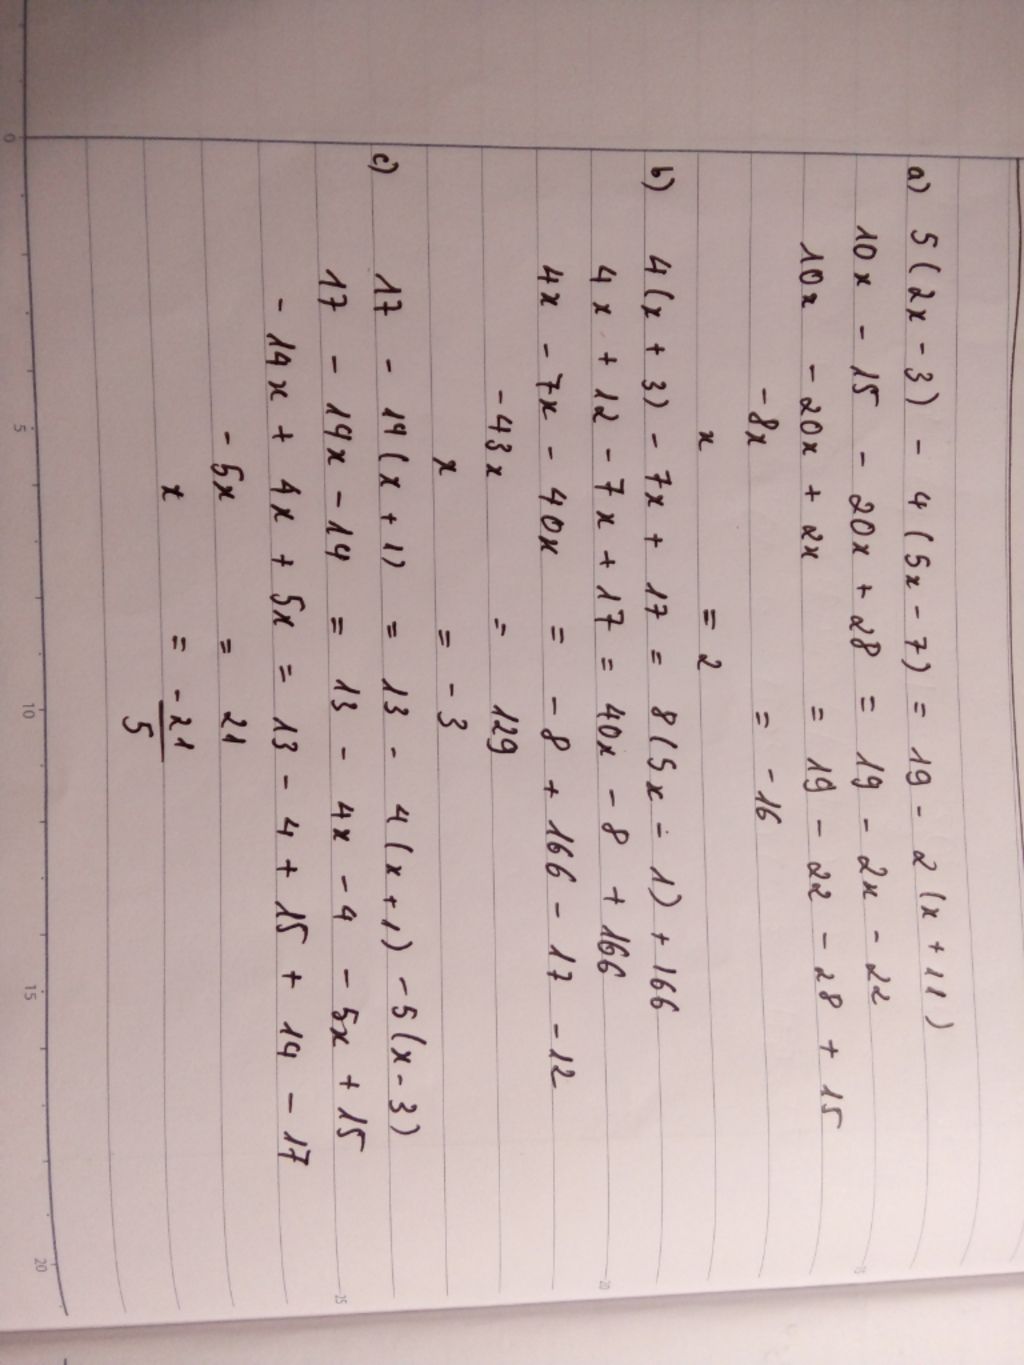 a) 5(2x - 3) - 4(5x - 7) = 19 - 2(x + 11)
10x - 15 - 20x + 28 = 19 - 2x - 22
10x - 20x + 2x = 19 - 22 - 28 + 15
-8x = -16
x = 2
b) 4(x + 3) - 7x + 17 = 8(5x - 1) + 166
4x + 12 - 7x + 17 = 40x - 8 + 166
4x - 7x - 40x = -8 + 166 - 17 - 12
-43x = 129
x = -3
c) 17 - 14(x + 1) = 13 - 4(x + 1) - 5(x - 3)
17 - 14x - 14 = 13 - 4x - 4 - 5x + 15
-14x + 4x + 5x = 13 - 4 + 15 + 14 - 17
-5x = 21
x = -21
5
0 5 10 15 20
15
20
25